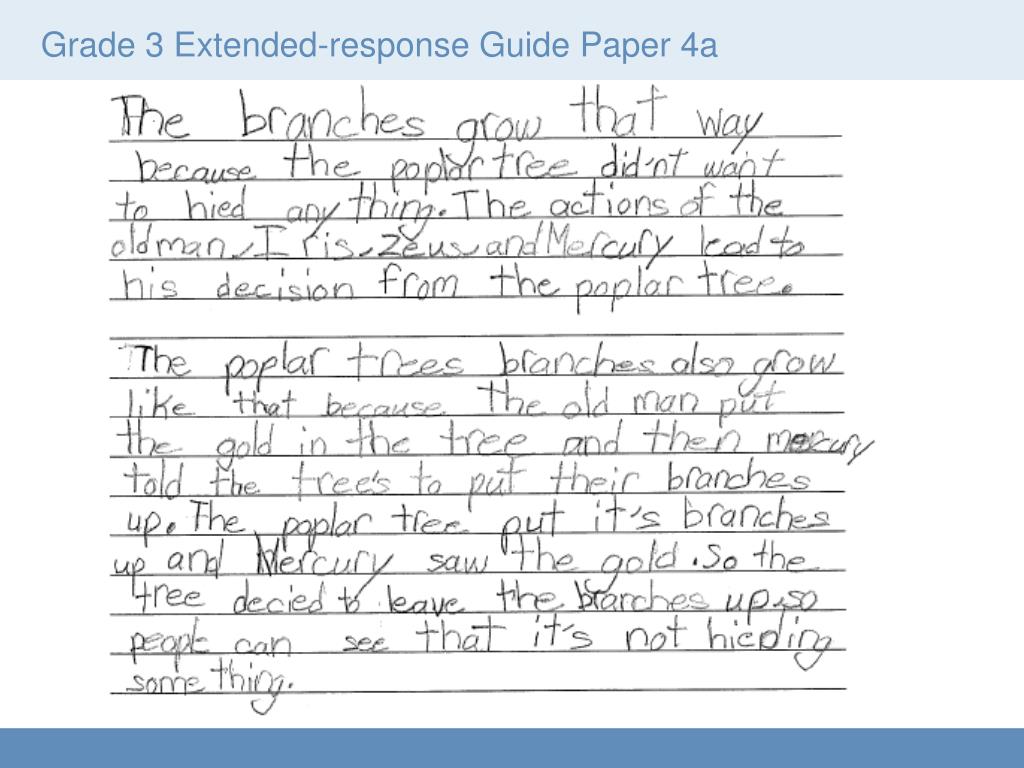 Grade 3 Extended-response Guide Paper 4a
The branches grow that way
because the poplar tree did'nt want
to hied any thing. The actions of the
old man, Iris, Zeus, and Mercury lead to
his decision from the poplar tree.
The poplar trees branches also grow
like that because the old man put
the gold in the tree and then mercury
told the tree's to put their branches
up. The poplar tree put it's branches
up and Mercury saw the gold. So the
tree decied to leave the branches up, so
people can see that it's not hieding
some thing.